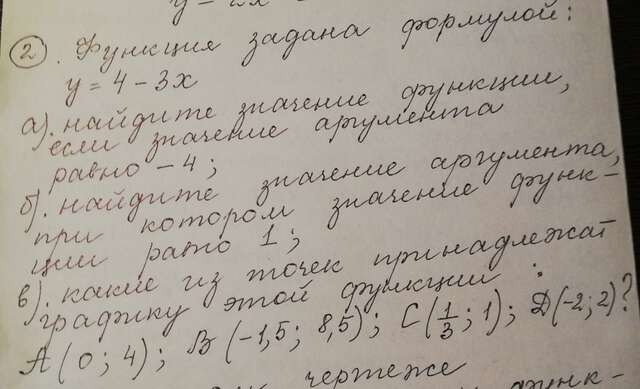 2. Функция задана формулой:
y = 4 - 3x
а). найдите значение функции,
если значение аргумента
равно -4;
б). найдите значение аргумента,
при котором значение функ-
ции равно 1;
в). какие из точек принадлежат
графику этой функции:
A(0; 4); B(-1,5; 8,5); C(1/3; 1); D(-2; 2)?
чертеже